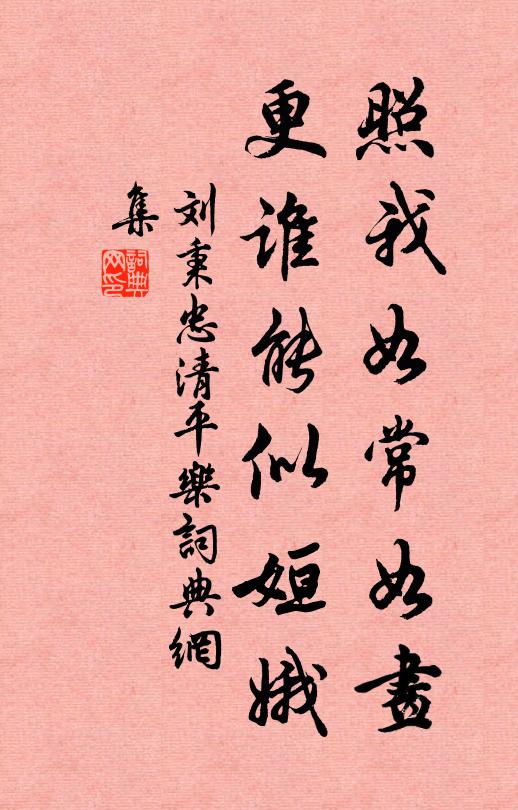 照我如常如畫
更谁能似姮娥
刘秉忠清平樂詞典網
集
詞典
网印